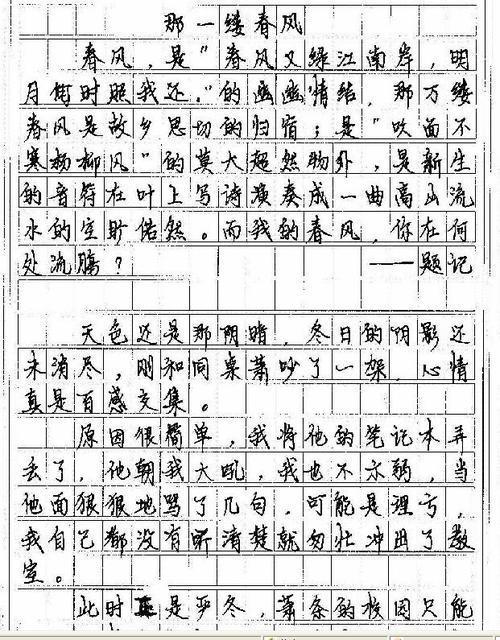 那一缕春风
春风，是"春风又绿江南岸，明
月何时照我还。"的幽幽情结，那万缕
春风是故乡思切的归宿；是"吹面不
寒杨柳风"的莫大超然物外，是新生
的音符在叶上写诗演奏成一曲高山流
水的空旷偌然。而我的春风，你在何
处流腾？ ——题记
天色还是那阴暗，冬日的阴影还
未消尽，刚和同桌萧吵了一架，心情
真是百感交集。
原因很简单，我将他的笔记本弄
丢了，他朝我大吼，我也不示弱，当
他面狠狠地骂了几句，可能是理亏，
我自己都没有听清楚就匆忙冲出了教
室。
此时正是严冬，萧条的校园只能